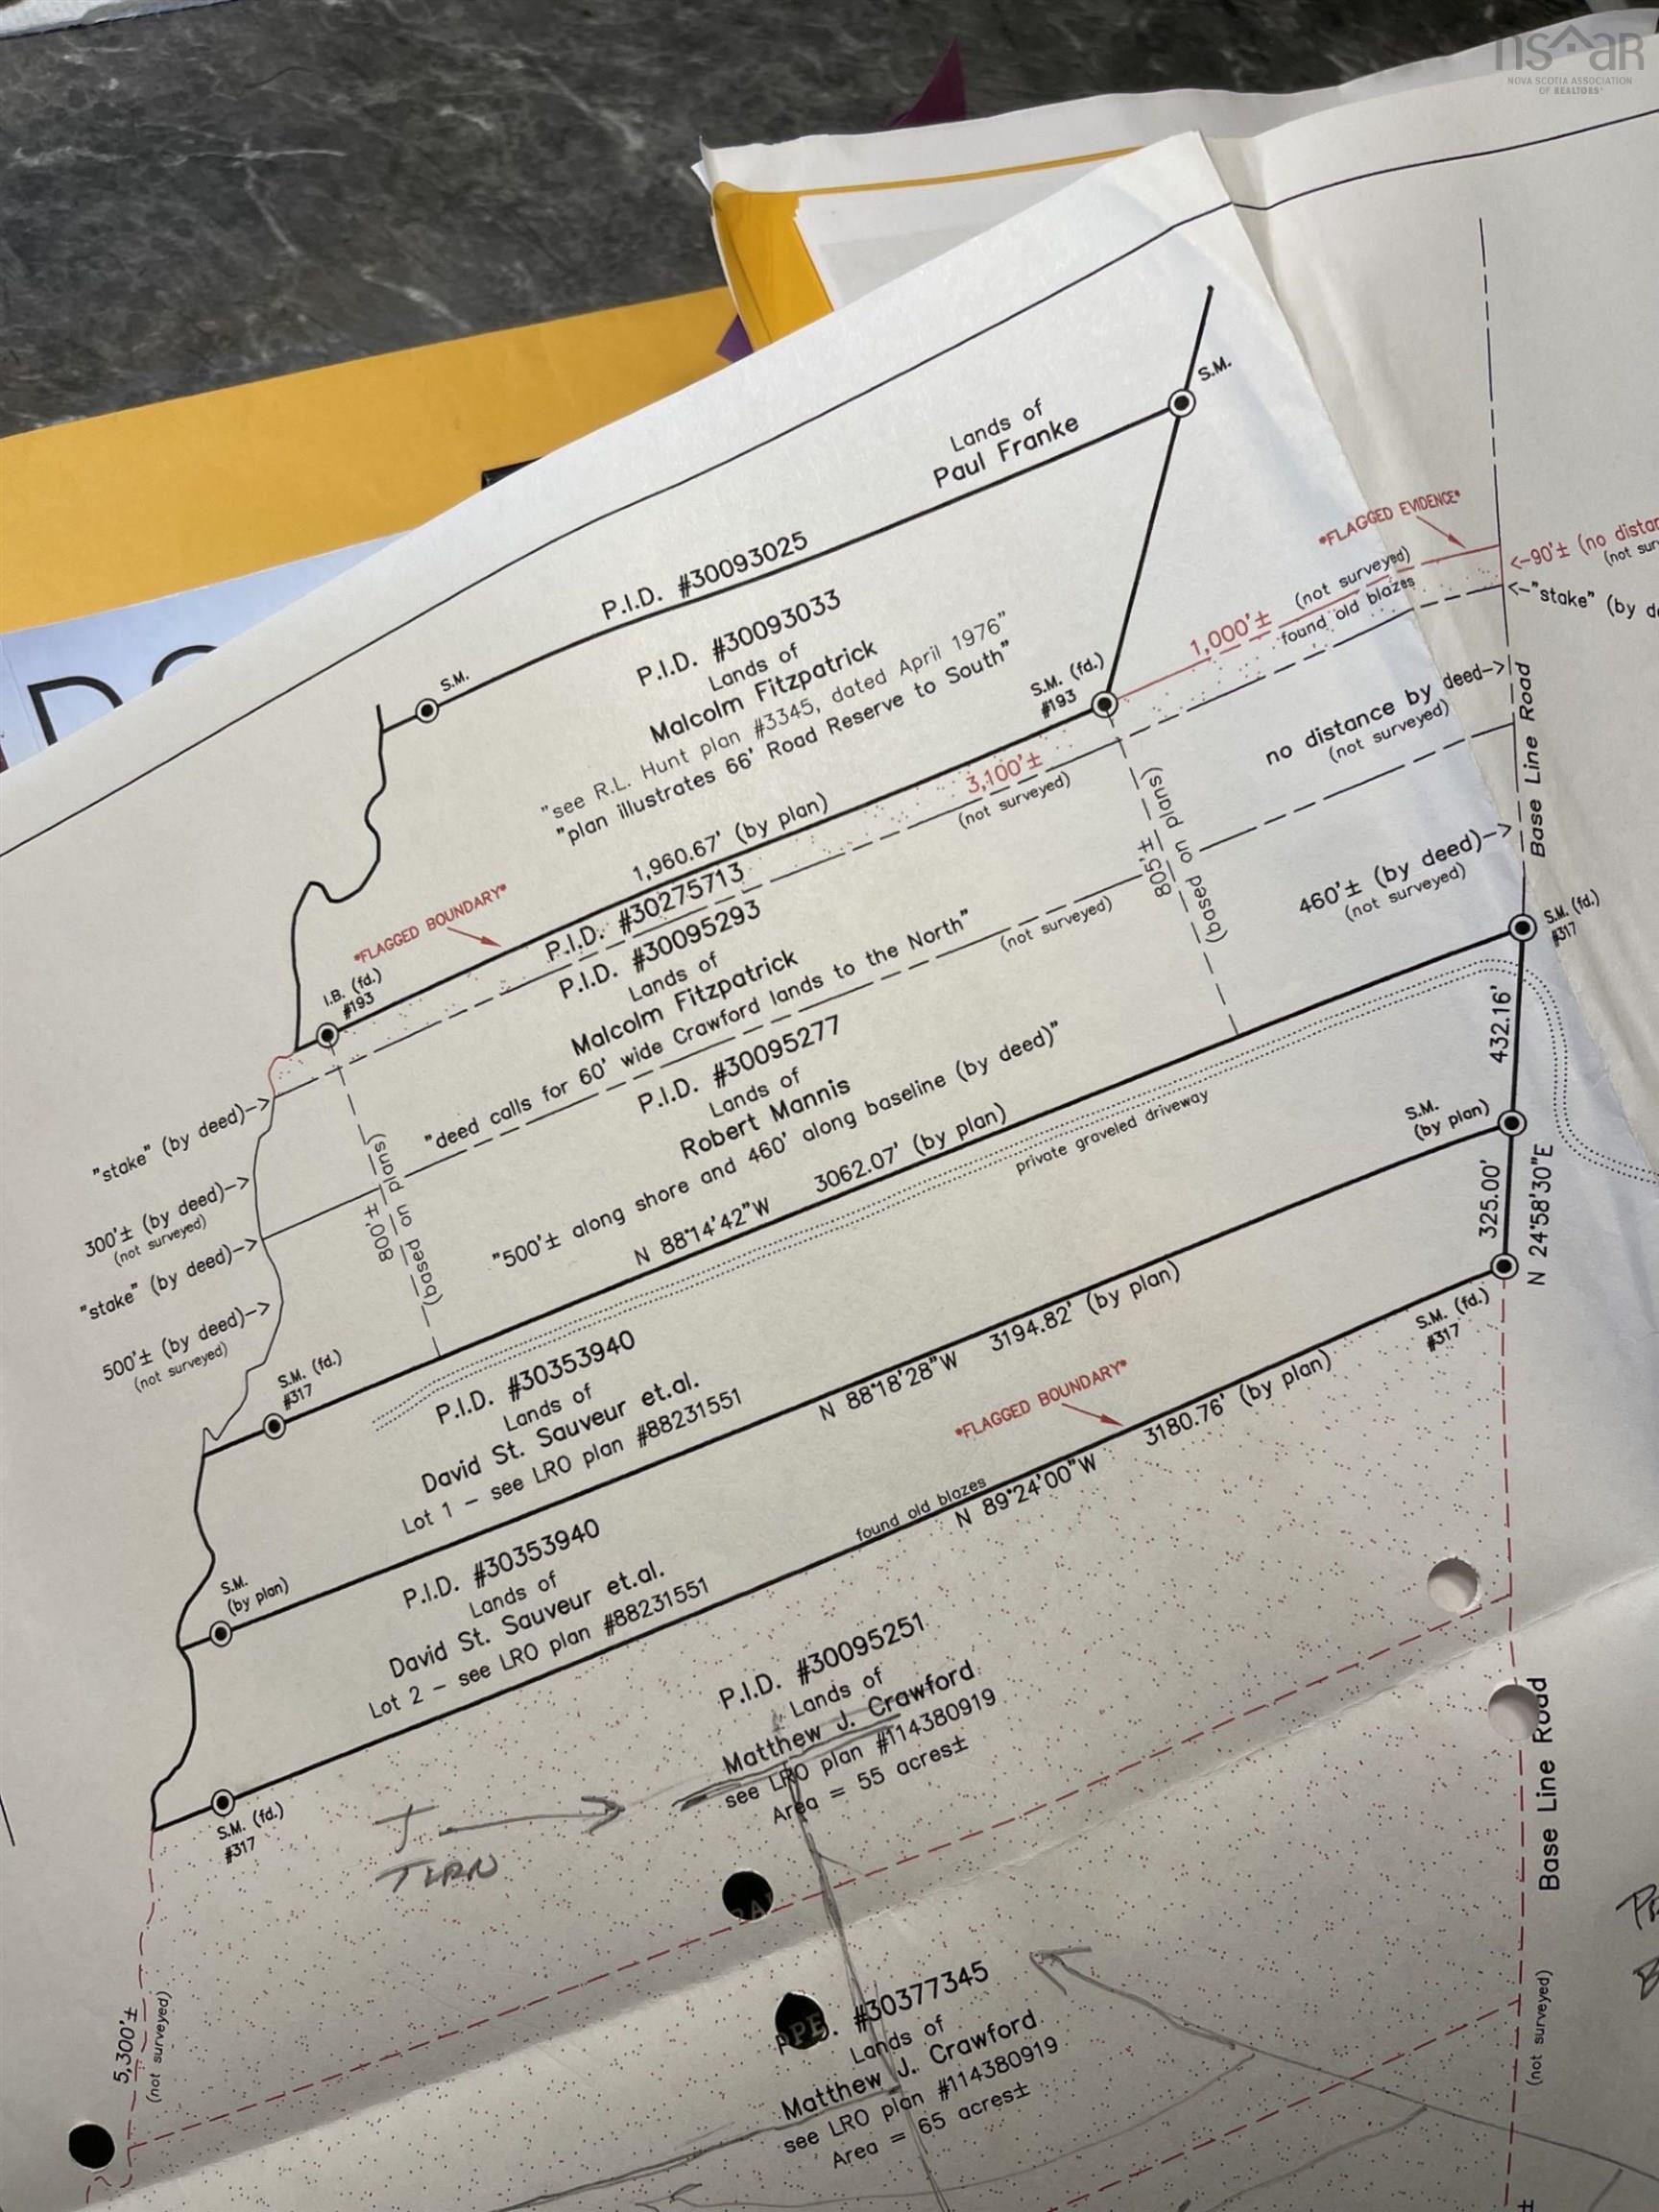 nsaar
NOVA SCOTIA ASSOCIATION
OF REALTORS®
S.M.
Lands of
Paul Franke
P.I.D. #30093025
S.M.
P.I.D. #30093033
Lands of
Malcolm Fitzpatrick
"see R.L. Hunt plan #3345, dated April 1976"
"plan illustrates 66' Road Reserve to South"
*FLAGGED EVIDENCE*
<-90'±
<-"stake"
1,000'±
(not surveyed)
found old blazes
S.M. (fd.)
#193
3,100'±
(not surveyed)
1,960.67' (by plan)
*FLAGGED BOUNDARY*
P.I.D. #30275713
I.B. (fd.)
#193
P.I.D. #30095293
Lands of
Malcolm Fitzpatrick
"deed calls for 60' wide Crawford lands to the North"
(not surveyed)
805'±
(based on plans)
no distance by deed->
(not surveyed)
Base Line Road
460'± (by deed)->
(not surveyed)
S.M. (fd.)
#317
"stake" (by deed)->
300'± (by deed)->
(not surveyed)
"stake" (by deed)->
500'± (by deed)->
(not surveyed)
800'±
(based on plans)
P.I.D. #30095277
Lands of
Robert Mannis
"500'± along shore and 460' along baseline (by deed)"
N 88°14'42"W
3062.07' (by plan)
private graveled driveway
432.16'
S.M.
(by plan)
325.00'
N 24°58'30"E
S.M. (fd.)
#317
S.M. (fd.)
#317
P.I.D. #30353940
Lands of
David St. Sauveur et.al.
Lot 1 - see LRO plan #88231551
N 88°18'28"W
3194.82' (by plan)
S.M.
(by plan)
P.I.D. #30353940
Lands of
David St. Sauveur et.al.
Lot 2 - see LRO plan #88231551
*FLAGGED BOUNDARY*
found old blazes
N 89°24'00"W
3180.76' (by plan)
S.M. (fd.)
#317
P.I.D. #30095251
Lands of
Matthew J. Crawford
see LRO plan #114380919
Area = 55 acres±
Base Line Road
(not surveyed)
5,300'±
(not surveyed)
#30377345
Lands of
Matthew J. Crawford
see LRO plan #114380919
Area = 65 acres±